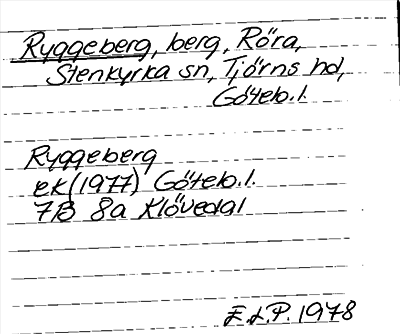 Ryggeberg, berg, Röra,
Stenkyrka sn, Tjörns hd,
Göteb.l.
Ryggeberg
ek (1977) Göteb.l.
7B 8a Klövedal
E.L.P. 1978